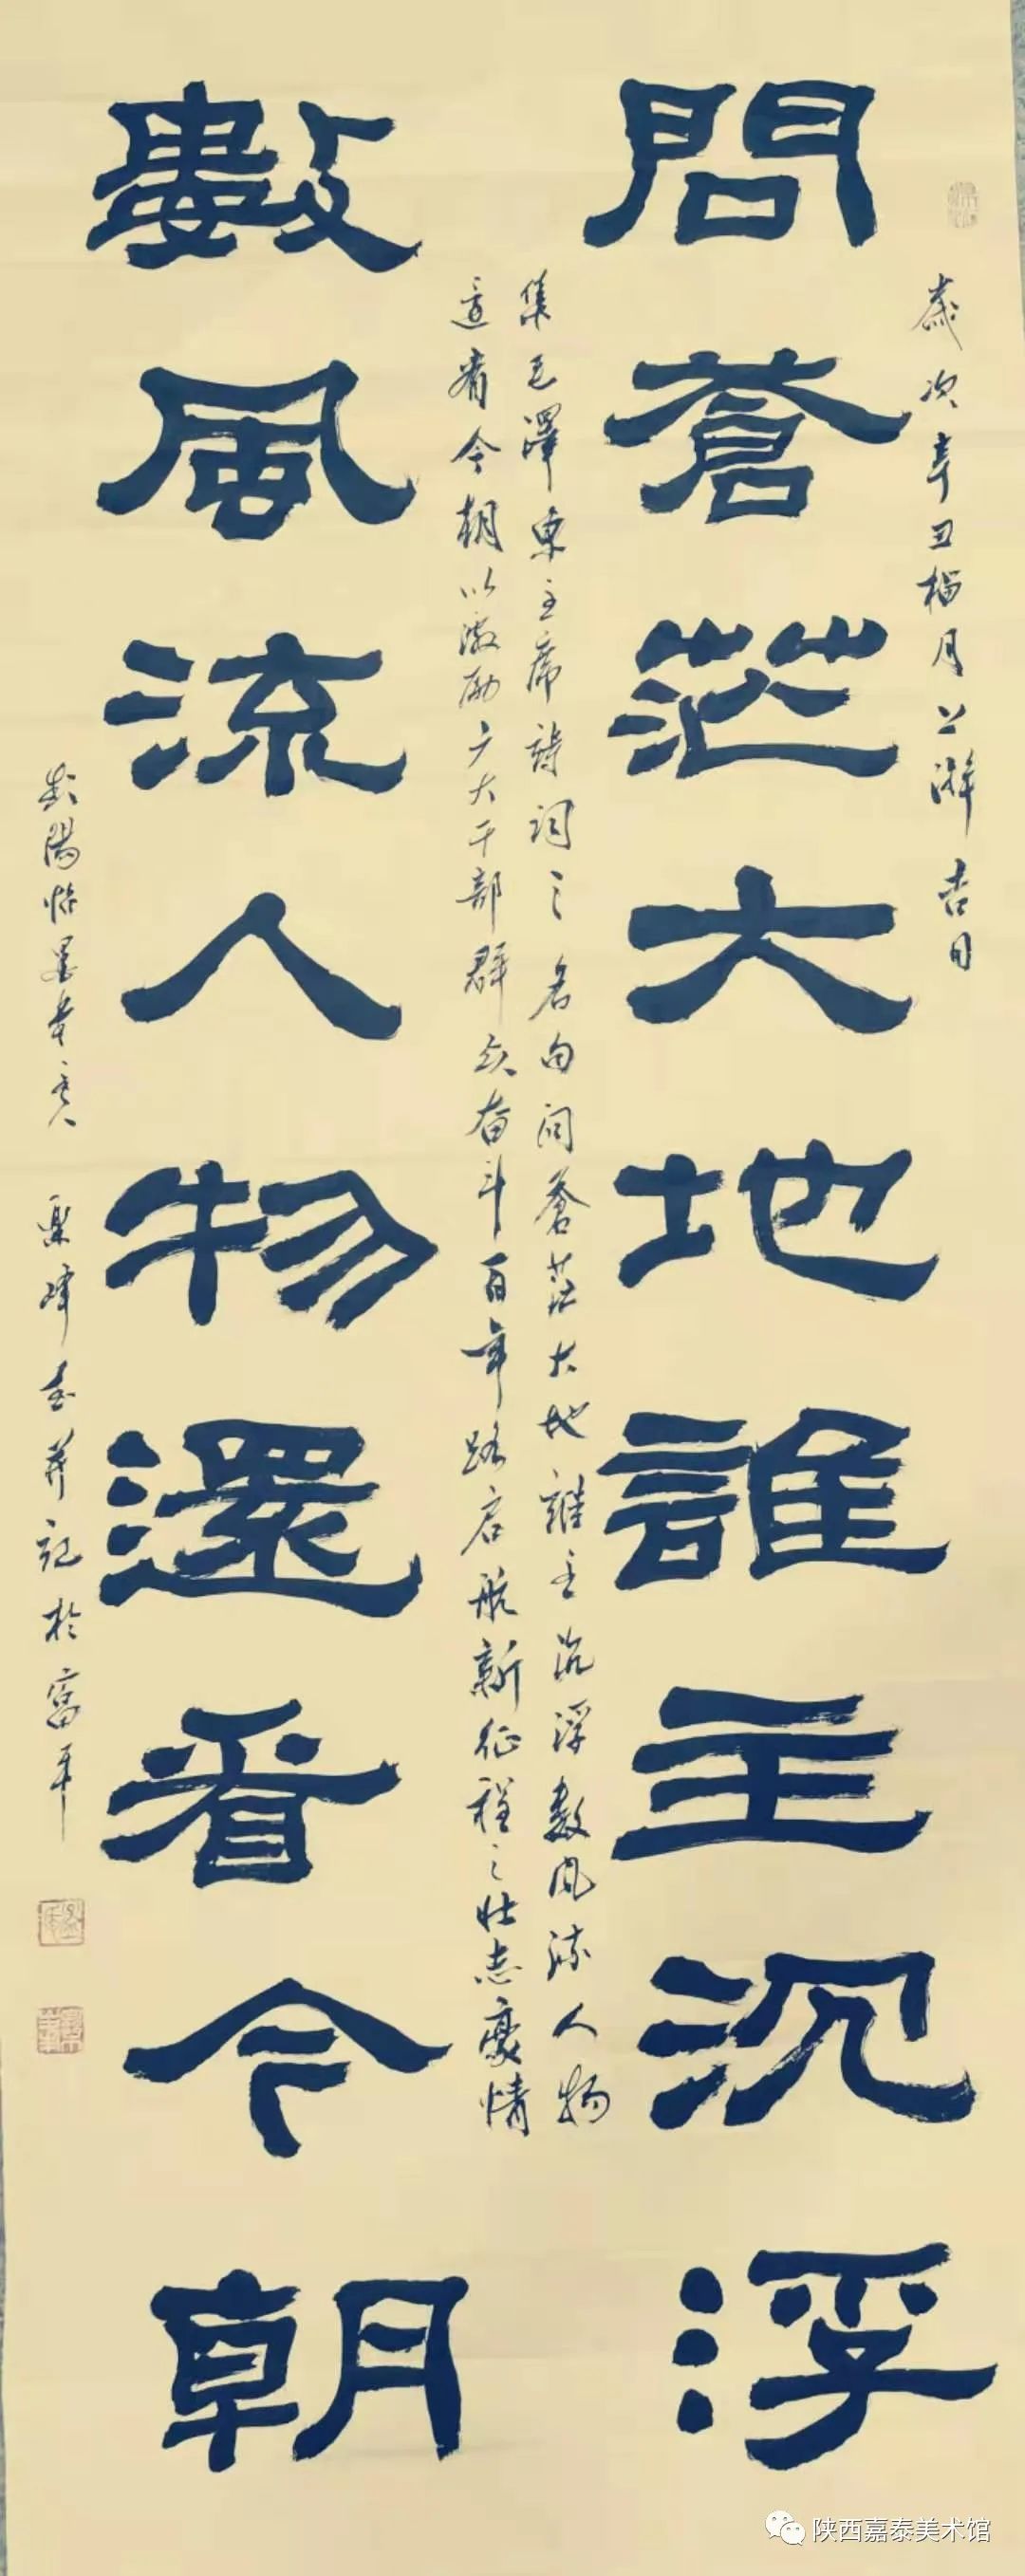 歲次辛丑榴月上澣吉日
問蒼茫大地誰主沉浮
集毛澤東主席詩詞之名句问蒼茫大地誰主沉浮数風流人物
還看今朝以激励广大干部群众奋斗百年路启航新征程之壮志豪情
數風流人物還看今朝
峰書并記於富平
陕西嘉泰美术馆